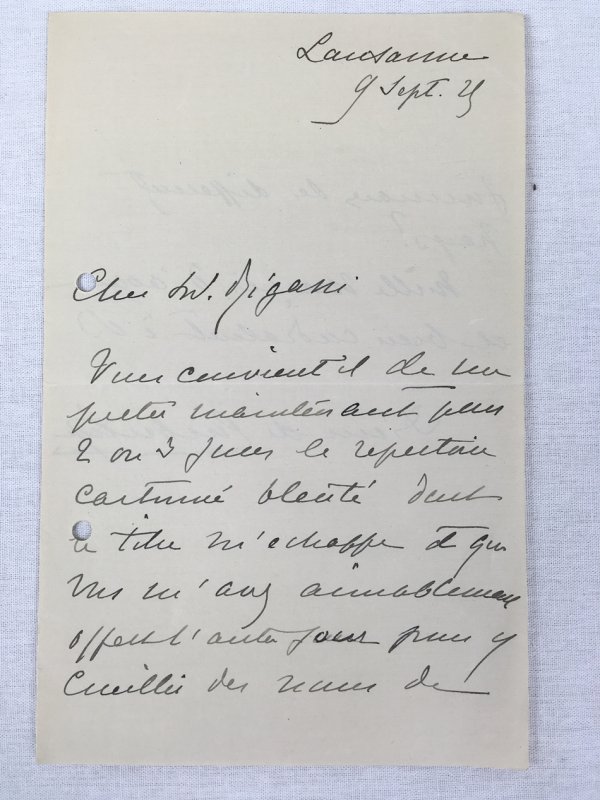 Lausanne
9 Sept. 25
Cher M. Rigassi
Vous convient'il de me
preter maintenant pour
2 ou 3 jours le repertoire
cartonné dont
le titre m'echappe et que
vous m'avez aimablement
offert l'autre jour pour y
cueillir des noms de